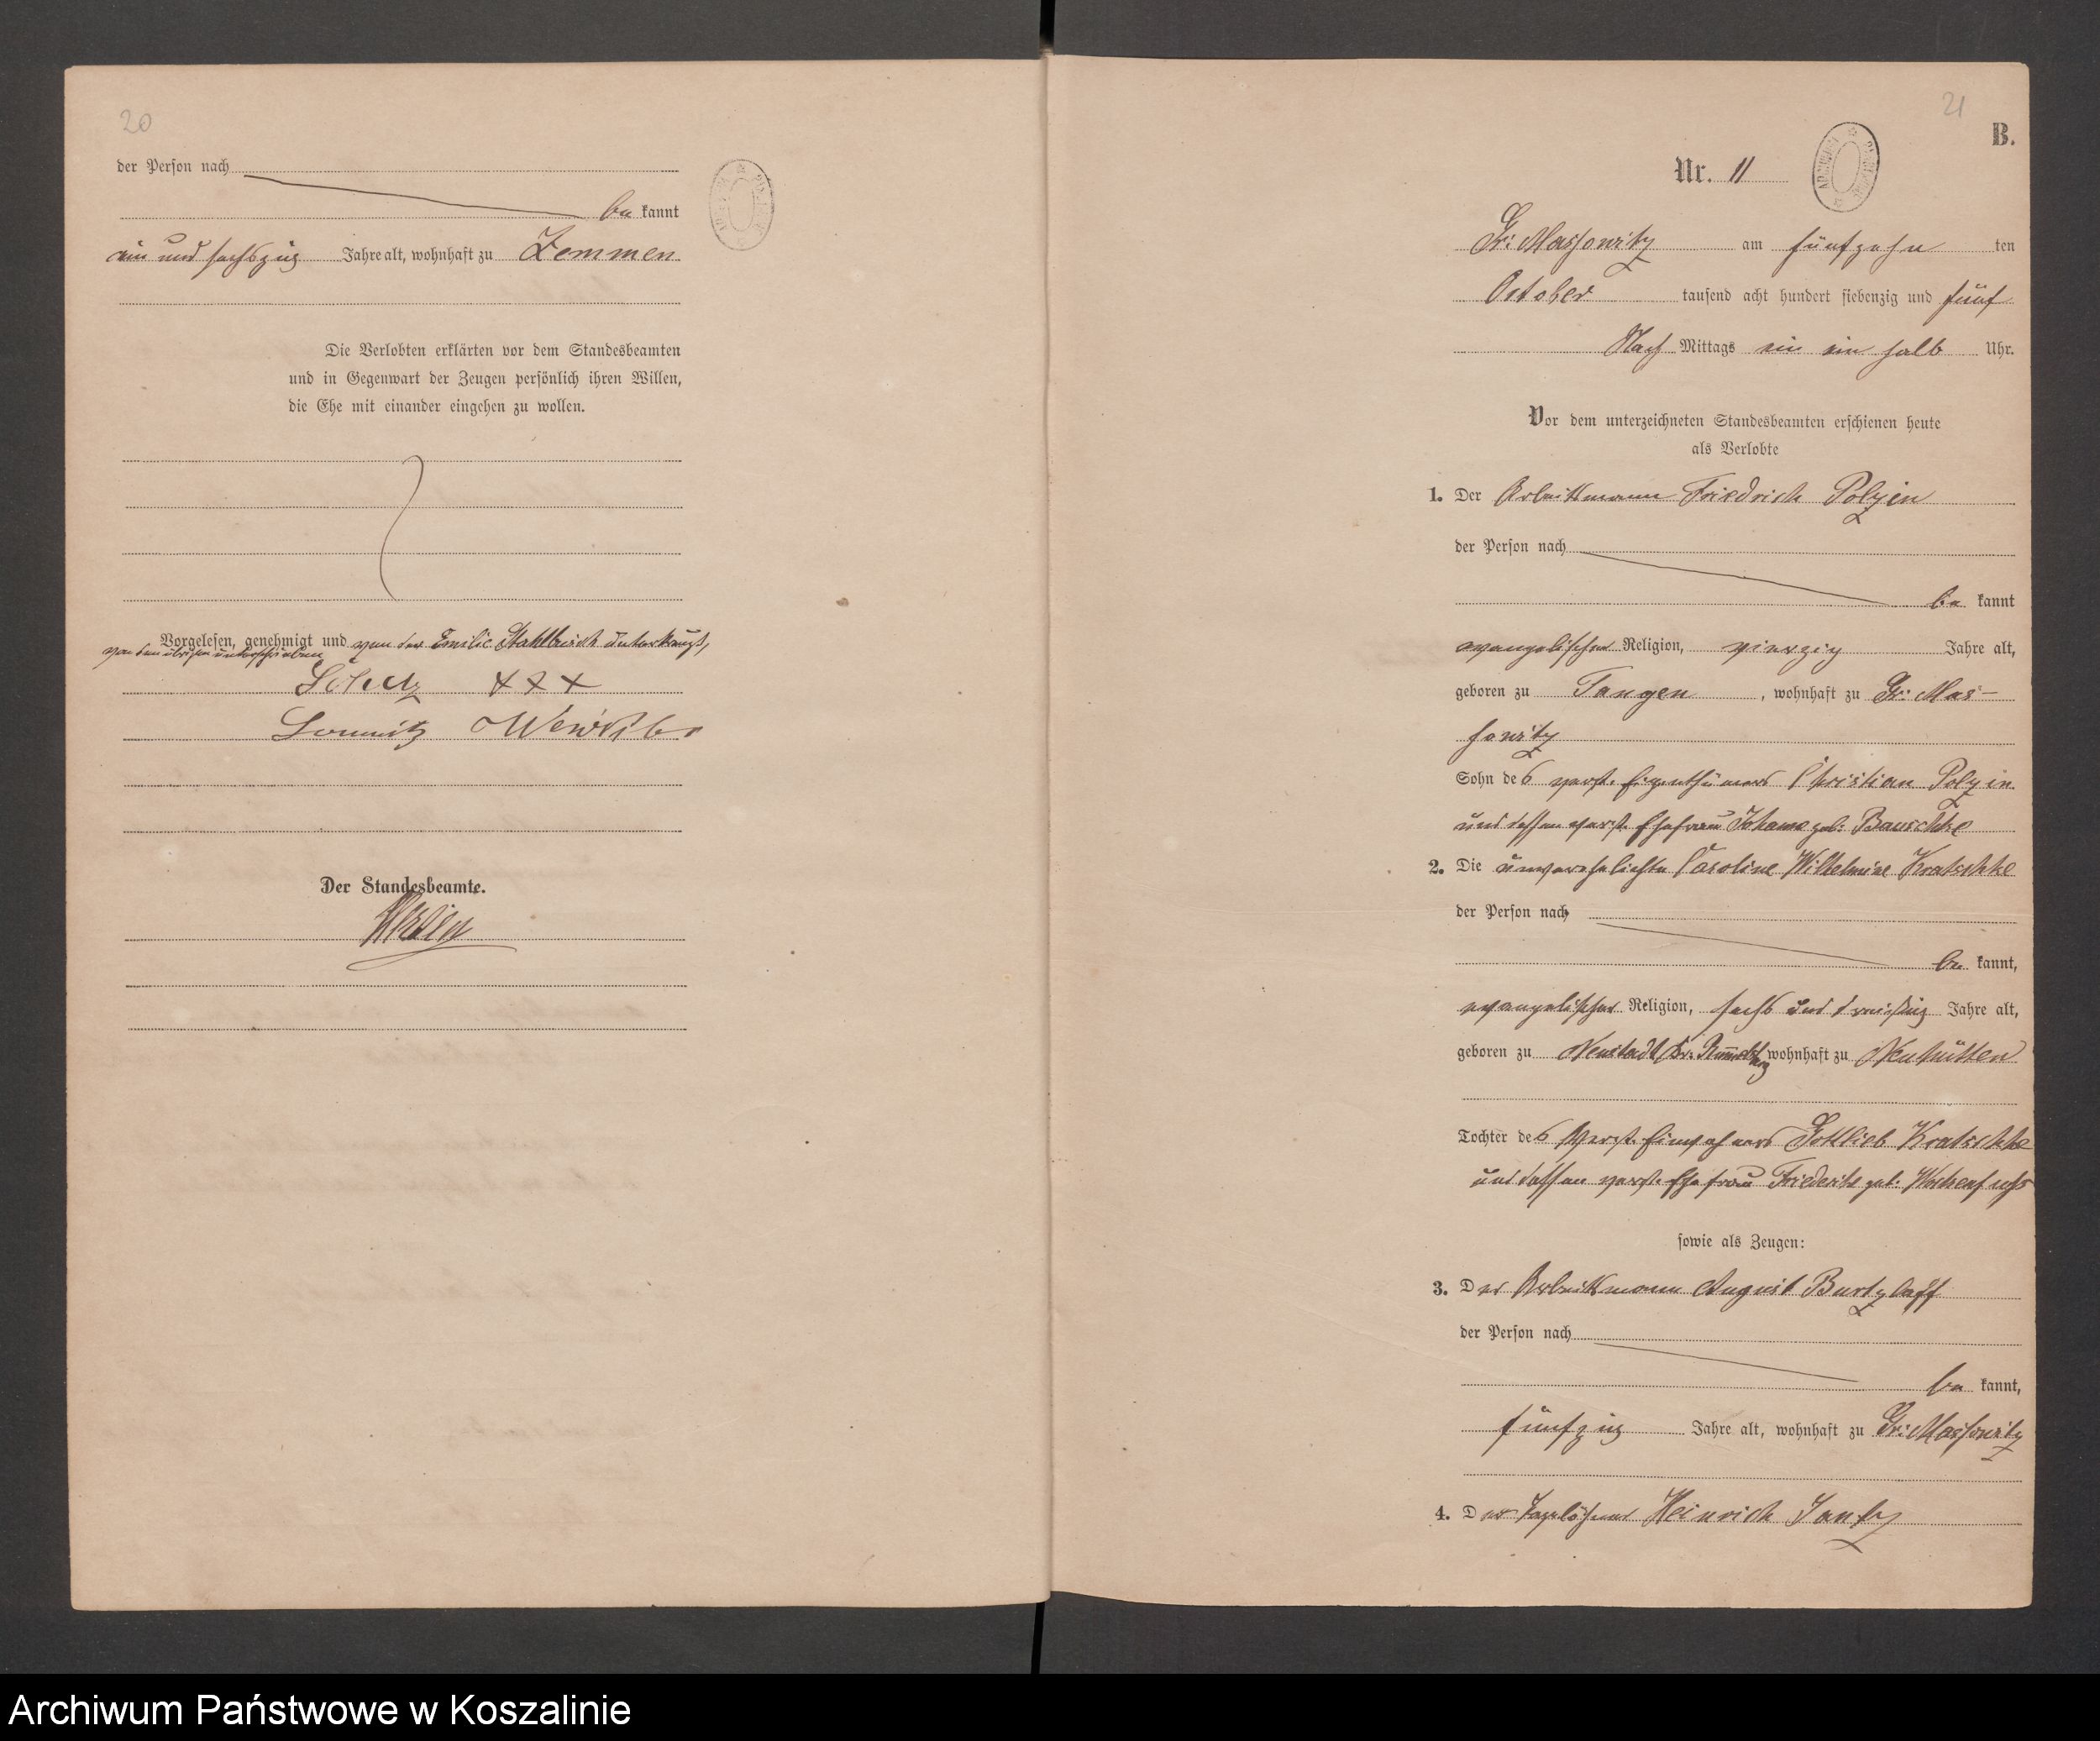 20
der Person nach
be kannt
ein und sechszig Jahre alt, wohnhaft zu Zemmen
Die Verlobten erklärten vor dem Standesbeamten
und in Gegenwart der Zeugen persönlich ihren Willen,
die Ehe mit einander eingehen zu wollen.
Vorgelesen, genehmigt und von der Emilie unterkreuzt,
von den übrigen unterschrieben
XXX
Der Standesbeamte.
21
B.
Nr. 11
Gr: Massowitz am fünfzehn ten
October tausend acht hundert siebenzig und fünf
Nach Mittags ein ein halb Uhr.
Vor dem unterzeichneten Standesbeamten erschienen heute
als Verlobte
1. Der Arbeitsmann Friedrich Polzin
der Person nach
be kannt
evangelischer Religion, vierzig Jahre alt,
geboren zu Tangen, wohnhaft zu Gr: Mas-
sowitz
Sohn des verst. Eigenthümers Christian Polzin
und dessen verst. Ehefrau geb: Bauschke
2. Die unverehelichte Caroline Wilhelmine Kratschke
der Person nach
be kannt,
evangelischer Religion, sechs und dreißig Jahre alt,
geboren zu Neustadt Kr: wohnhaft zu Neuhütten
Tochter des verst. Einwohners Gottlieb Kratschke
und dessen verst. Ehefrau geb:
sowie als Zeugen:
3. Der Arbeitsmann August Burtzlaff
der Person nach
be kannt,
fünfzig Jahre alt, wohnhaft zu Gr: Massowitz
4. Der Tagelöhner Heinrich Jantz
Archiwum Państwowe w Koszalinie